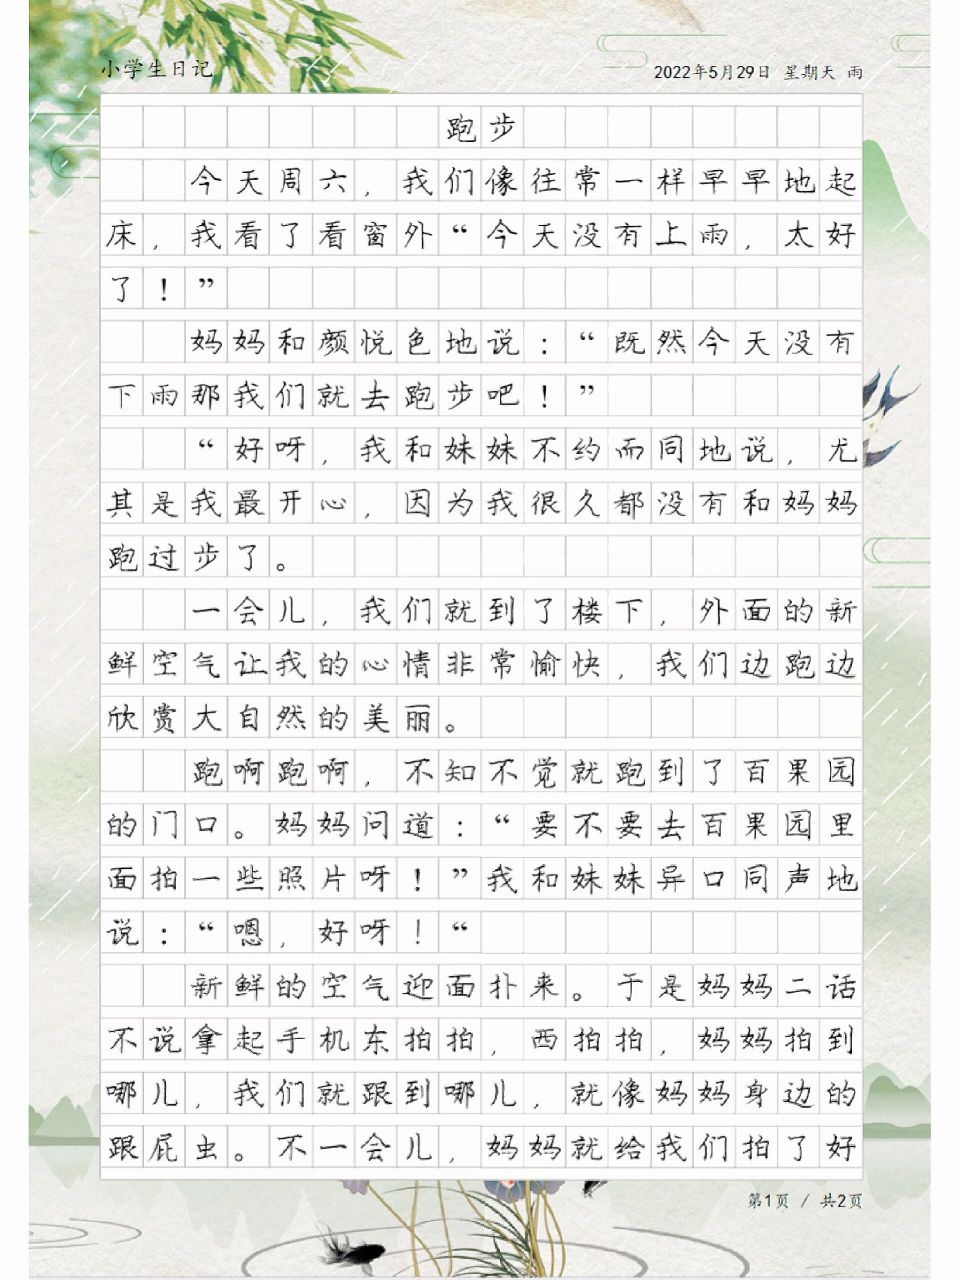 小学生日记
2022年5月29日 星期天 雨
跑步
今天周六，我们像往常一样早早地起
床，我看了看窗外“今天没有上雨，太好
了！”
妈妈和颜悦色地说：“既然今天没有
下雨那我们就去跑步吧！”
“好呀，我和妹妹不约而同地说，尤
其是我最开心，因为我很久都没有和妈妈
跑过步了。
一会儿，我们就到了楼下，外面的新
鲜空气让我的心情非常愉快，我们边跑边
欣赏大自然的美丽。
跑啊跑啊，不知不觉就跑到了百果园
的门口。妈妈问道：“要不要去百果园里
面拍一些照片呀！”我和妹妹异口同声地
说：“嗯，好呀！“
新鲜的空气迎面扑来。于是妈妈二话
不说拿起手机东拍拍，西拍拍，妈妈拍到
哪儿，我们就跟到哪儿，就像妈妈身边的
跟屁虫。不一会儿，妈妈就给我们拍了好
第1页 / 共2页